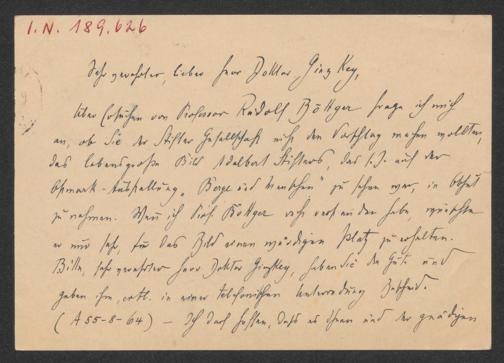 I.N. 189.626
Sehr verehrter, lieber Herr Doktor Ginzkey,
über Ersuchen von Professor Rudolf Böttger frage ich mich
an, ob Sie der Stifter Gesellschaft nicht den Vorschlag machen wollten,
das lebensgroße Bild Adalbert Stifters, das s.Z. auf der
Ostmark-Ausstellung „Berge und Menschen" zu sehen war, in Obhut
zu nehmen. Wenn ich Prof. Böttger recht verstanden habe, möchte
er nur sehr, für das Bild einen würdigen Platz zu erhalten.
Bitte, sehr verehrter Herr Doktor Ginzkey, haben Sie die Güte und
geben ihm, evtl. in einer telefonischen Unterredung Bescheid.
(A 55-8-64) – Ich darf hoffen, daß es Ihnen und der gnädigen